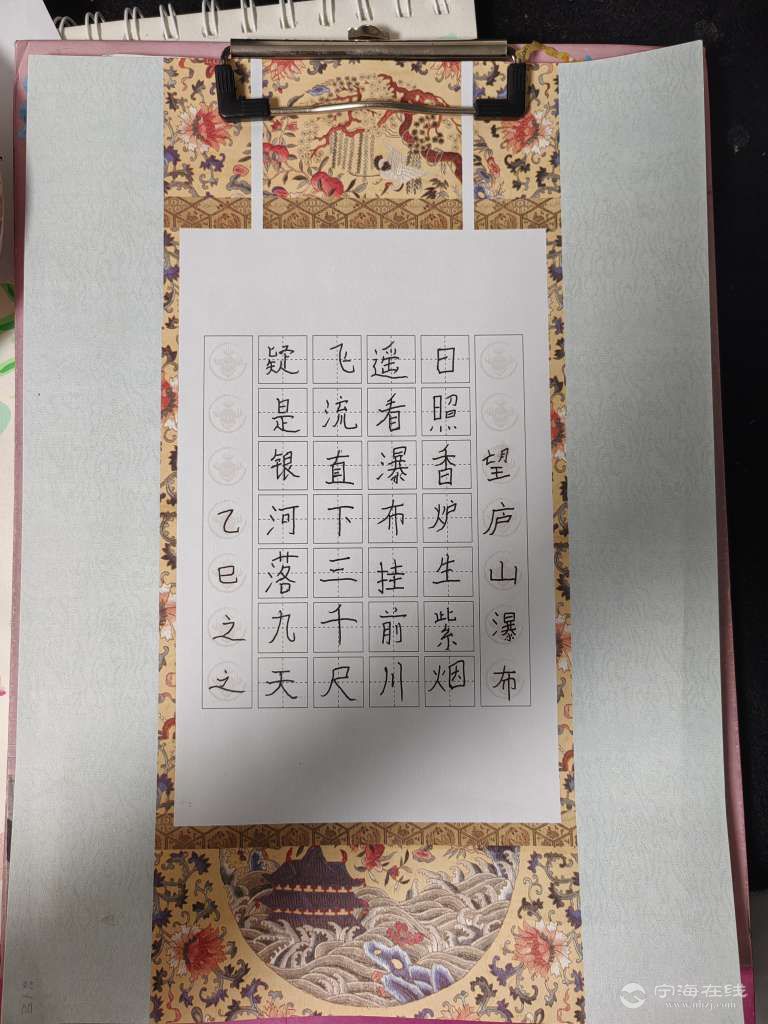 望庐山瀑布
日照香炉生紫烟
遥看瀑布挂前川
飞流直下三千尺
疑是银河落九天
乙巳之之
宁海在线
www.nhzj.com